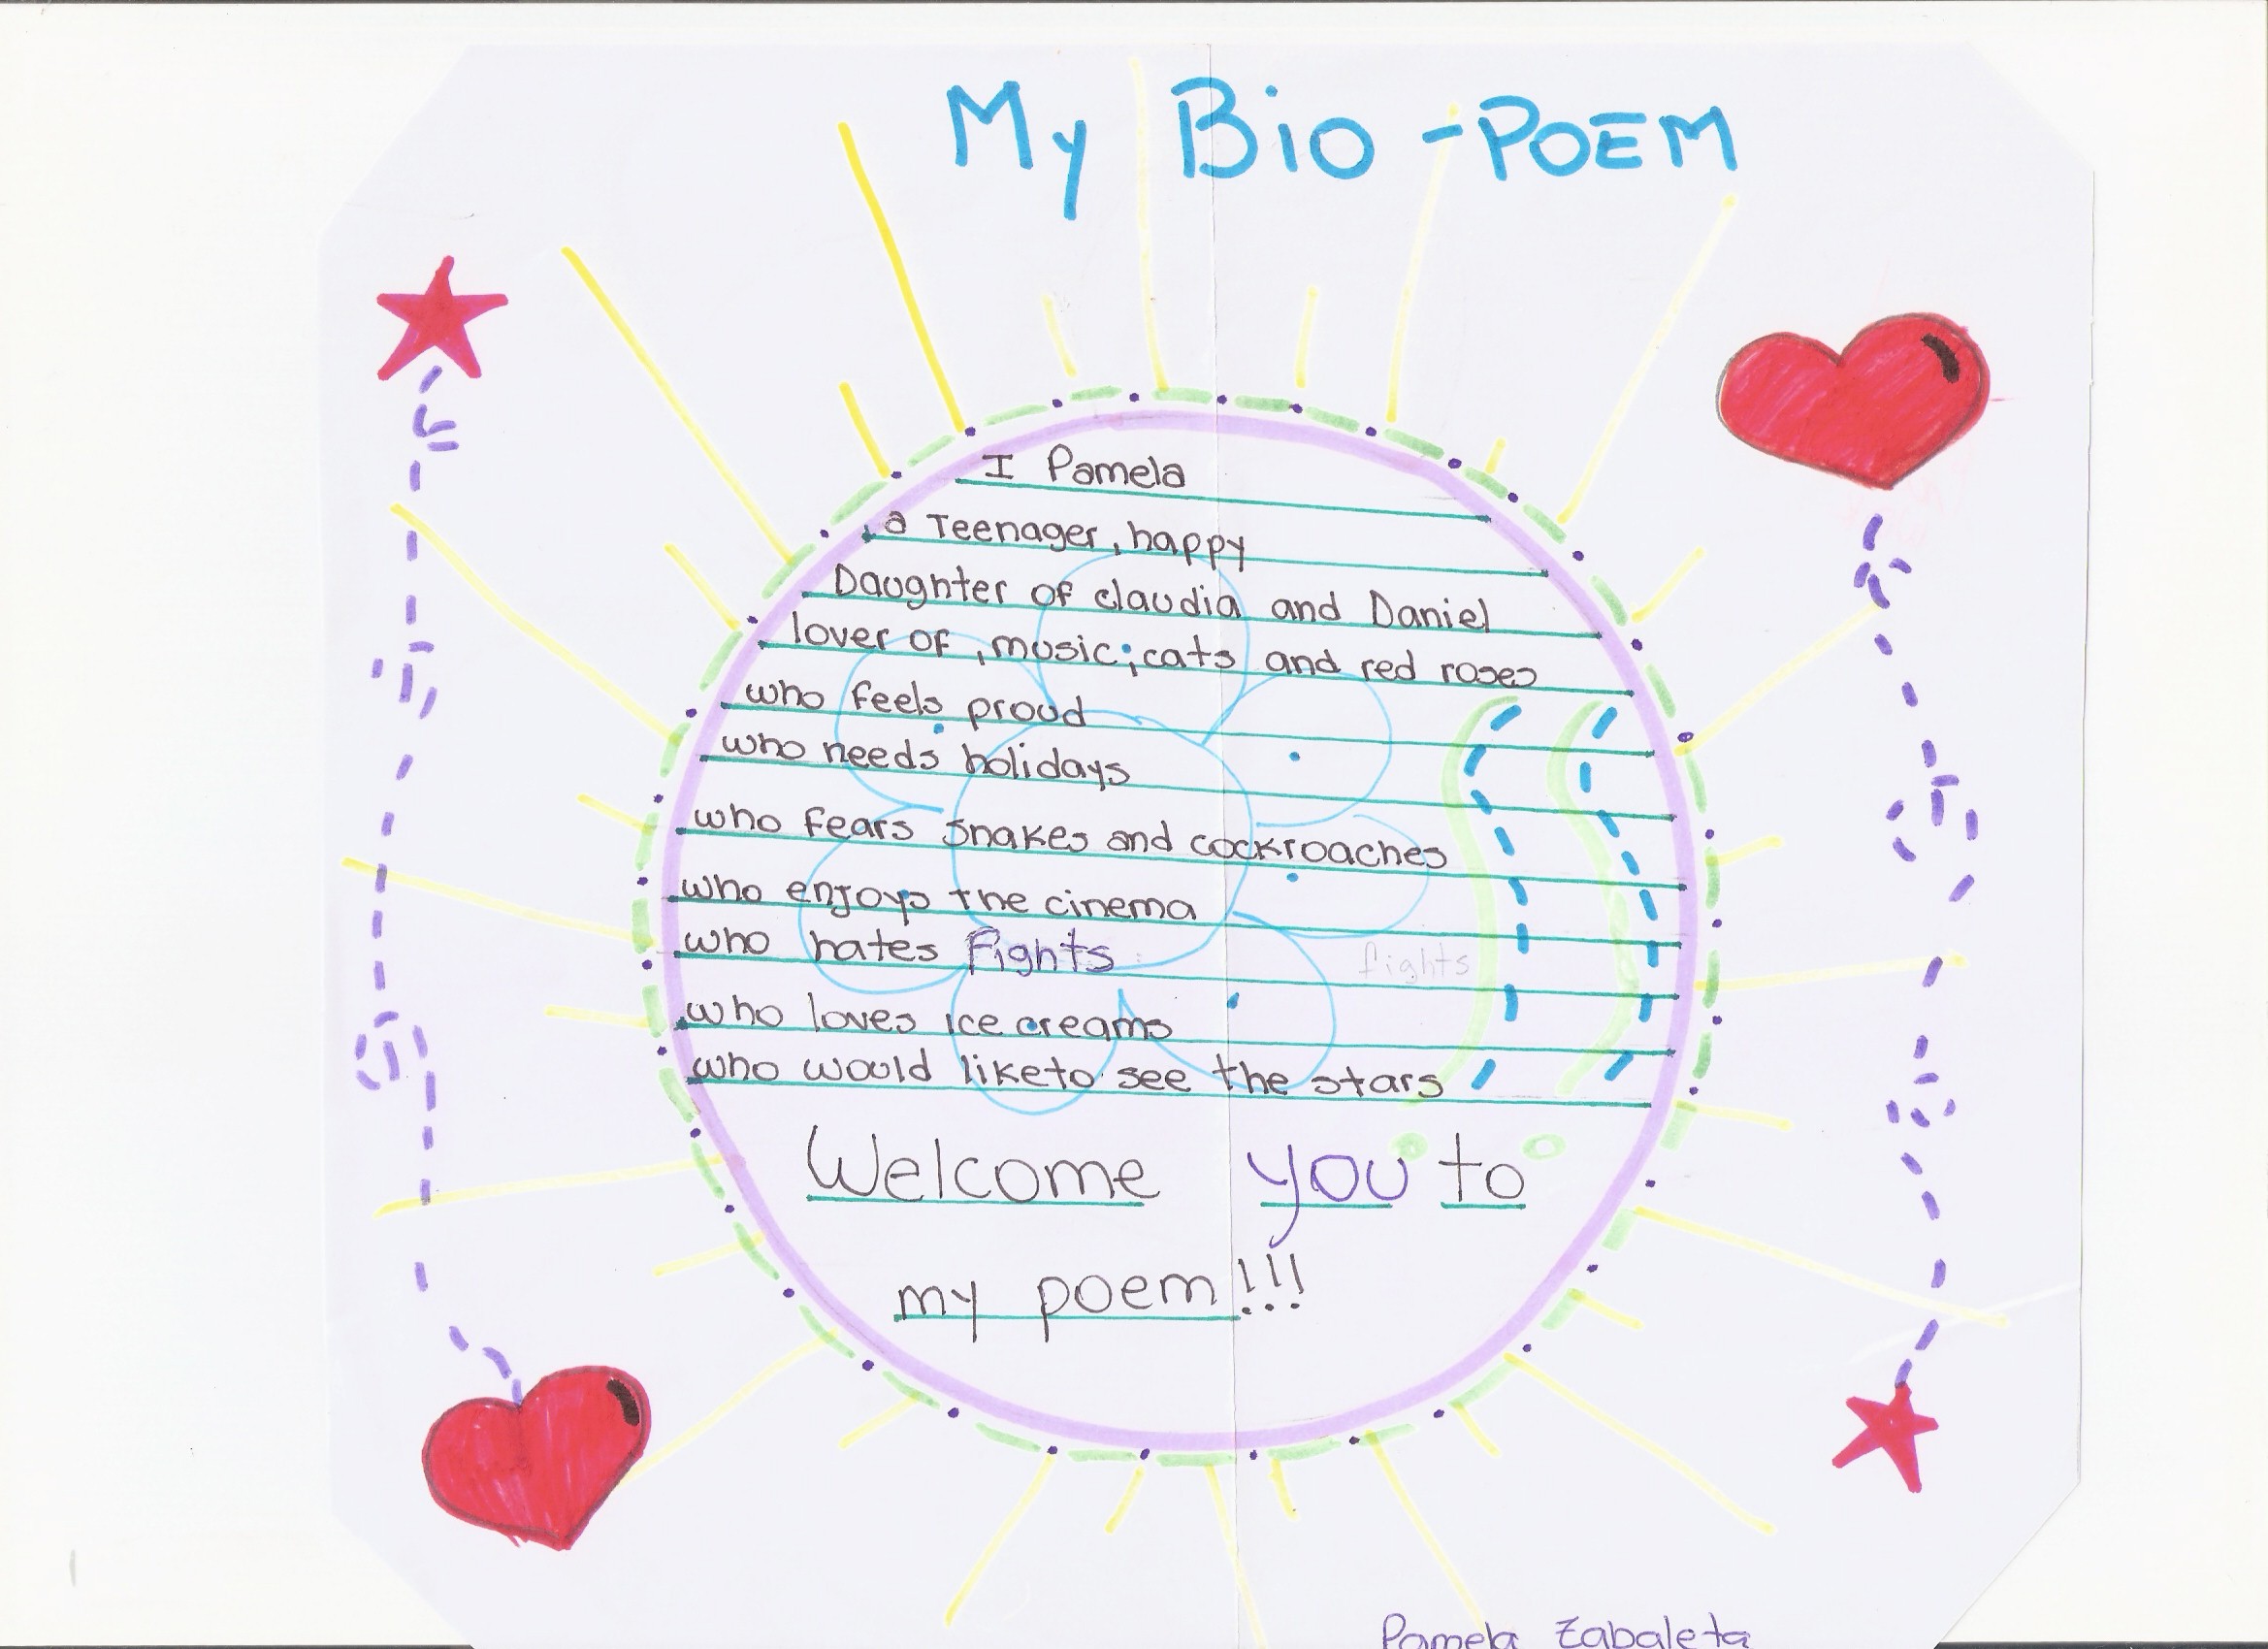 My Bio -POEM
I Pamela
a Teenager, happy
Daughter of claudia and Daniel
lover of, music; cats and red roses
who feels proud
who needs holidays
who fears snakes and cockroaches
who enjoys the cinema
who hates fights fights
who loves ice creams
who would like to see the stars
Welcome you to
my poem!!!
Pamela Zabaleta